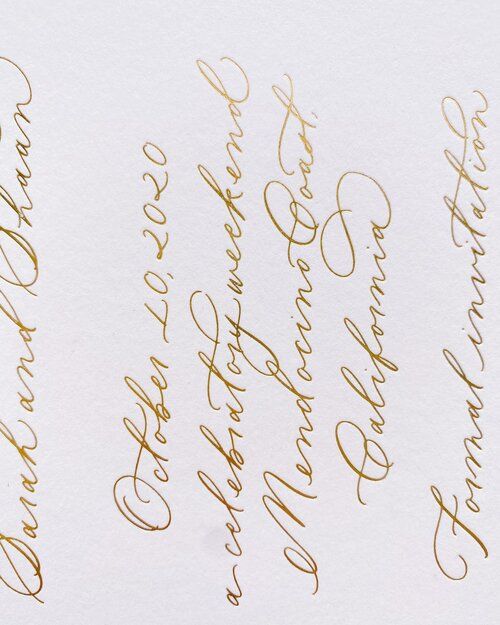 Sarah and Shaan
October 10, 2020
a celebratory weekend
Mendocino Coast,
California
Formal invitation